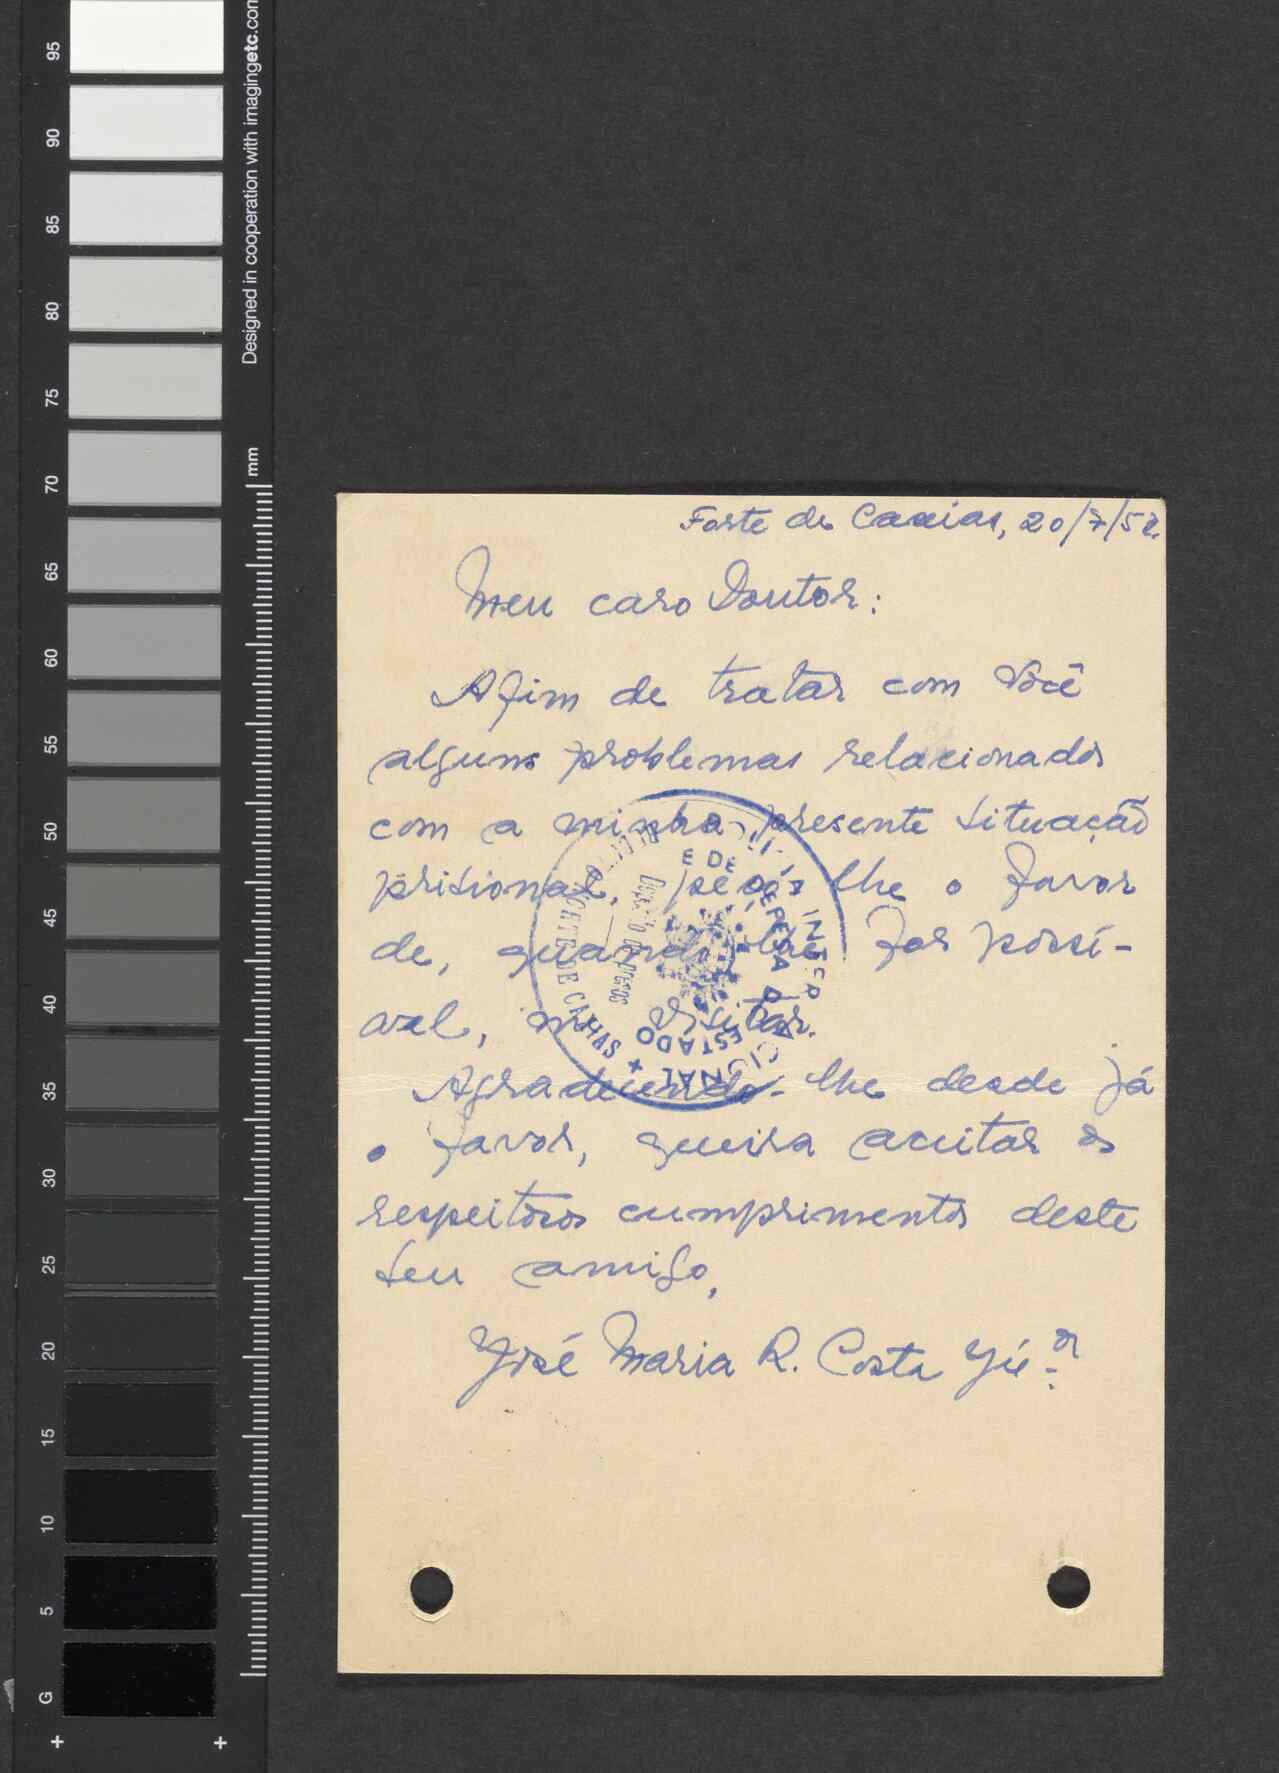 Designed in cooperation with imagingetc.com
mm
95
90
85
80
75
70
65
60
55
50
45
40
35
30
25
20
15
10
5
G
Forte de Caxias, 20/7/52.
Meu caro Doutor:
Afim de tratar com Você
alguns problemas relacionados
com a minha presente situação
prisional, peço-lhe o favor
de, quando lhe for possí-
vel, me visitar.
Agradecendo-lhe desde já
o favor, queira aceitar os
respeitosos cumprimentos deste
seu amigo,
José Maria R. Costa Jú.or
E DE DEFESA DO ESTADO
Depósito de presos
DE CAXIAS
INTERNACIONAL